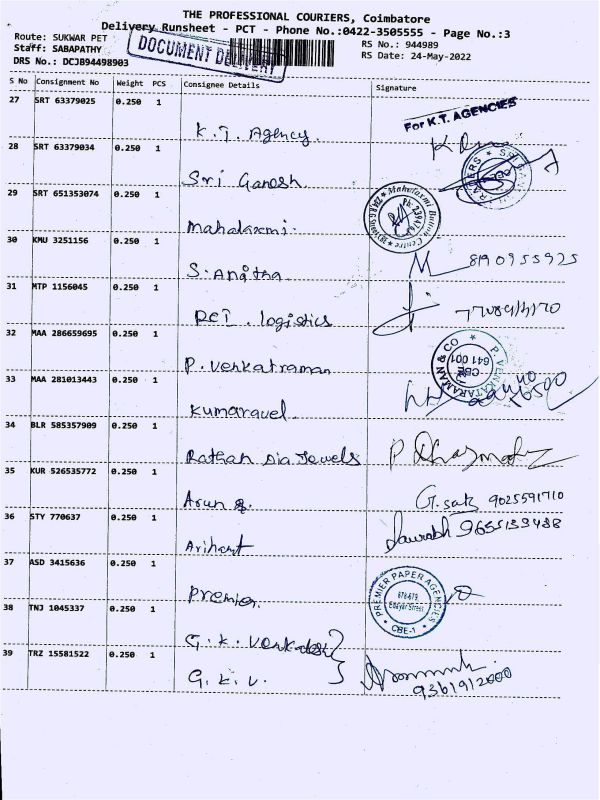 THE PROFESSIONAL COURIERS, Coimbatore
Delivery Runsheet - PCT - Phone No.:0422-3505555 - Page No.:3
Route: SUKWAR PET
RS No.: 944989
Staff: SABAPATHY
RS Date: 24-May-2022
DRS No.: DCJB94498903
DOCUMENT DELIVERY
S No Consignment No Weight PCS Consignee Details Signature
27 SRT 63379025 0.250 1 K.T. Agency
For K.T. AGENCIES
28 SRT 63379034 0.250 1 Sri Ganesh
29 SRT 651353074 0.250 1 Mahalaxmi
Mahalaxmi Battery Centre
30 KMU 3251156 0.250 1 S. Anitha
8190955925
31 MTP 1156045 0.250 1 logistics
32 MAA 286659695 0.250 1 P. Venkatraman
P. VENKATARAMAN & CO
CBE 641 001
33 MAA 281013443 0.250 1 Kumaravel
34 BLR 585357909 0.250 1 Rathan Dia Jewels
35 KUR 526535772 0.250 1 Arun
9025591710
36 STY 770637 0.250 1 Arihant
Saurabh
37 ASD 3415636 0.250 1 Premier
PREMIER PAPER AGENCIES
CBE-1
38 TNJ 1045337 0.250 1 G. K. Venkadesh
39 TRZ 15581522 0.250 1 G. K. V.
9361912000